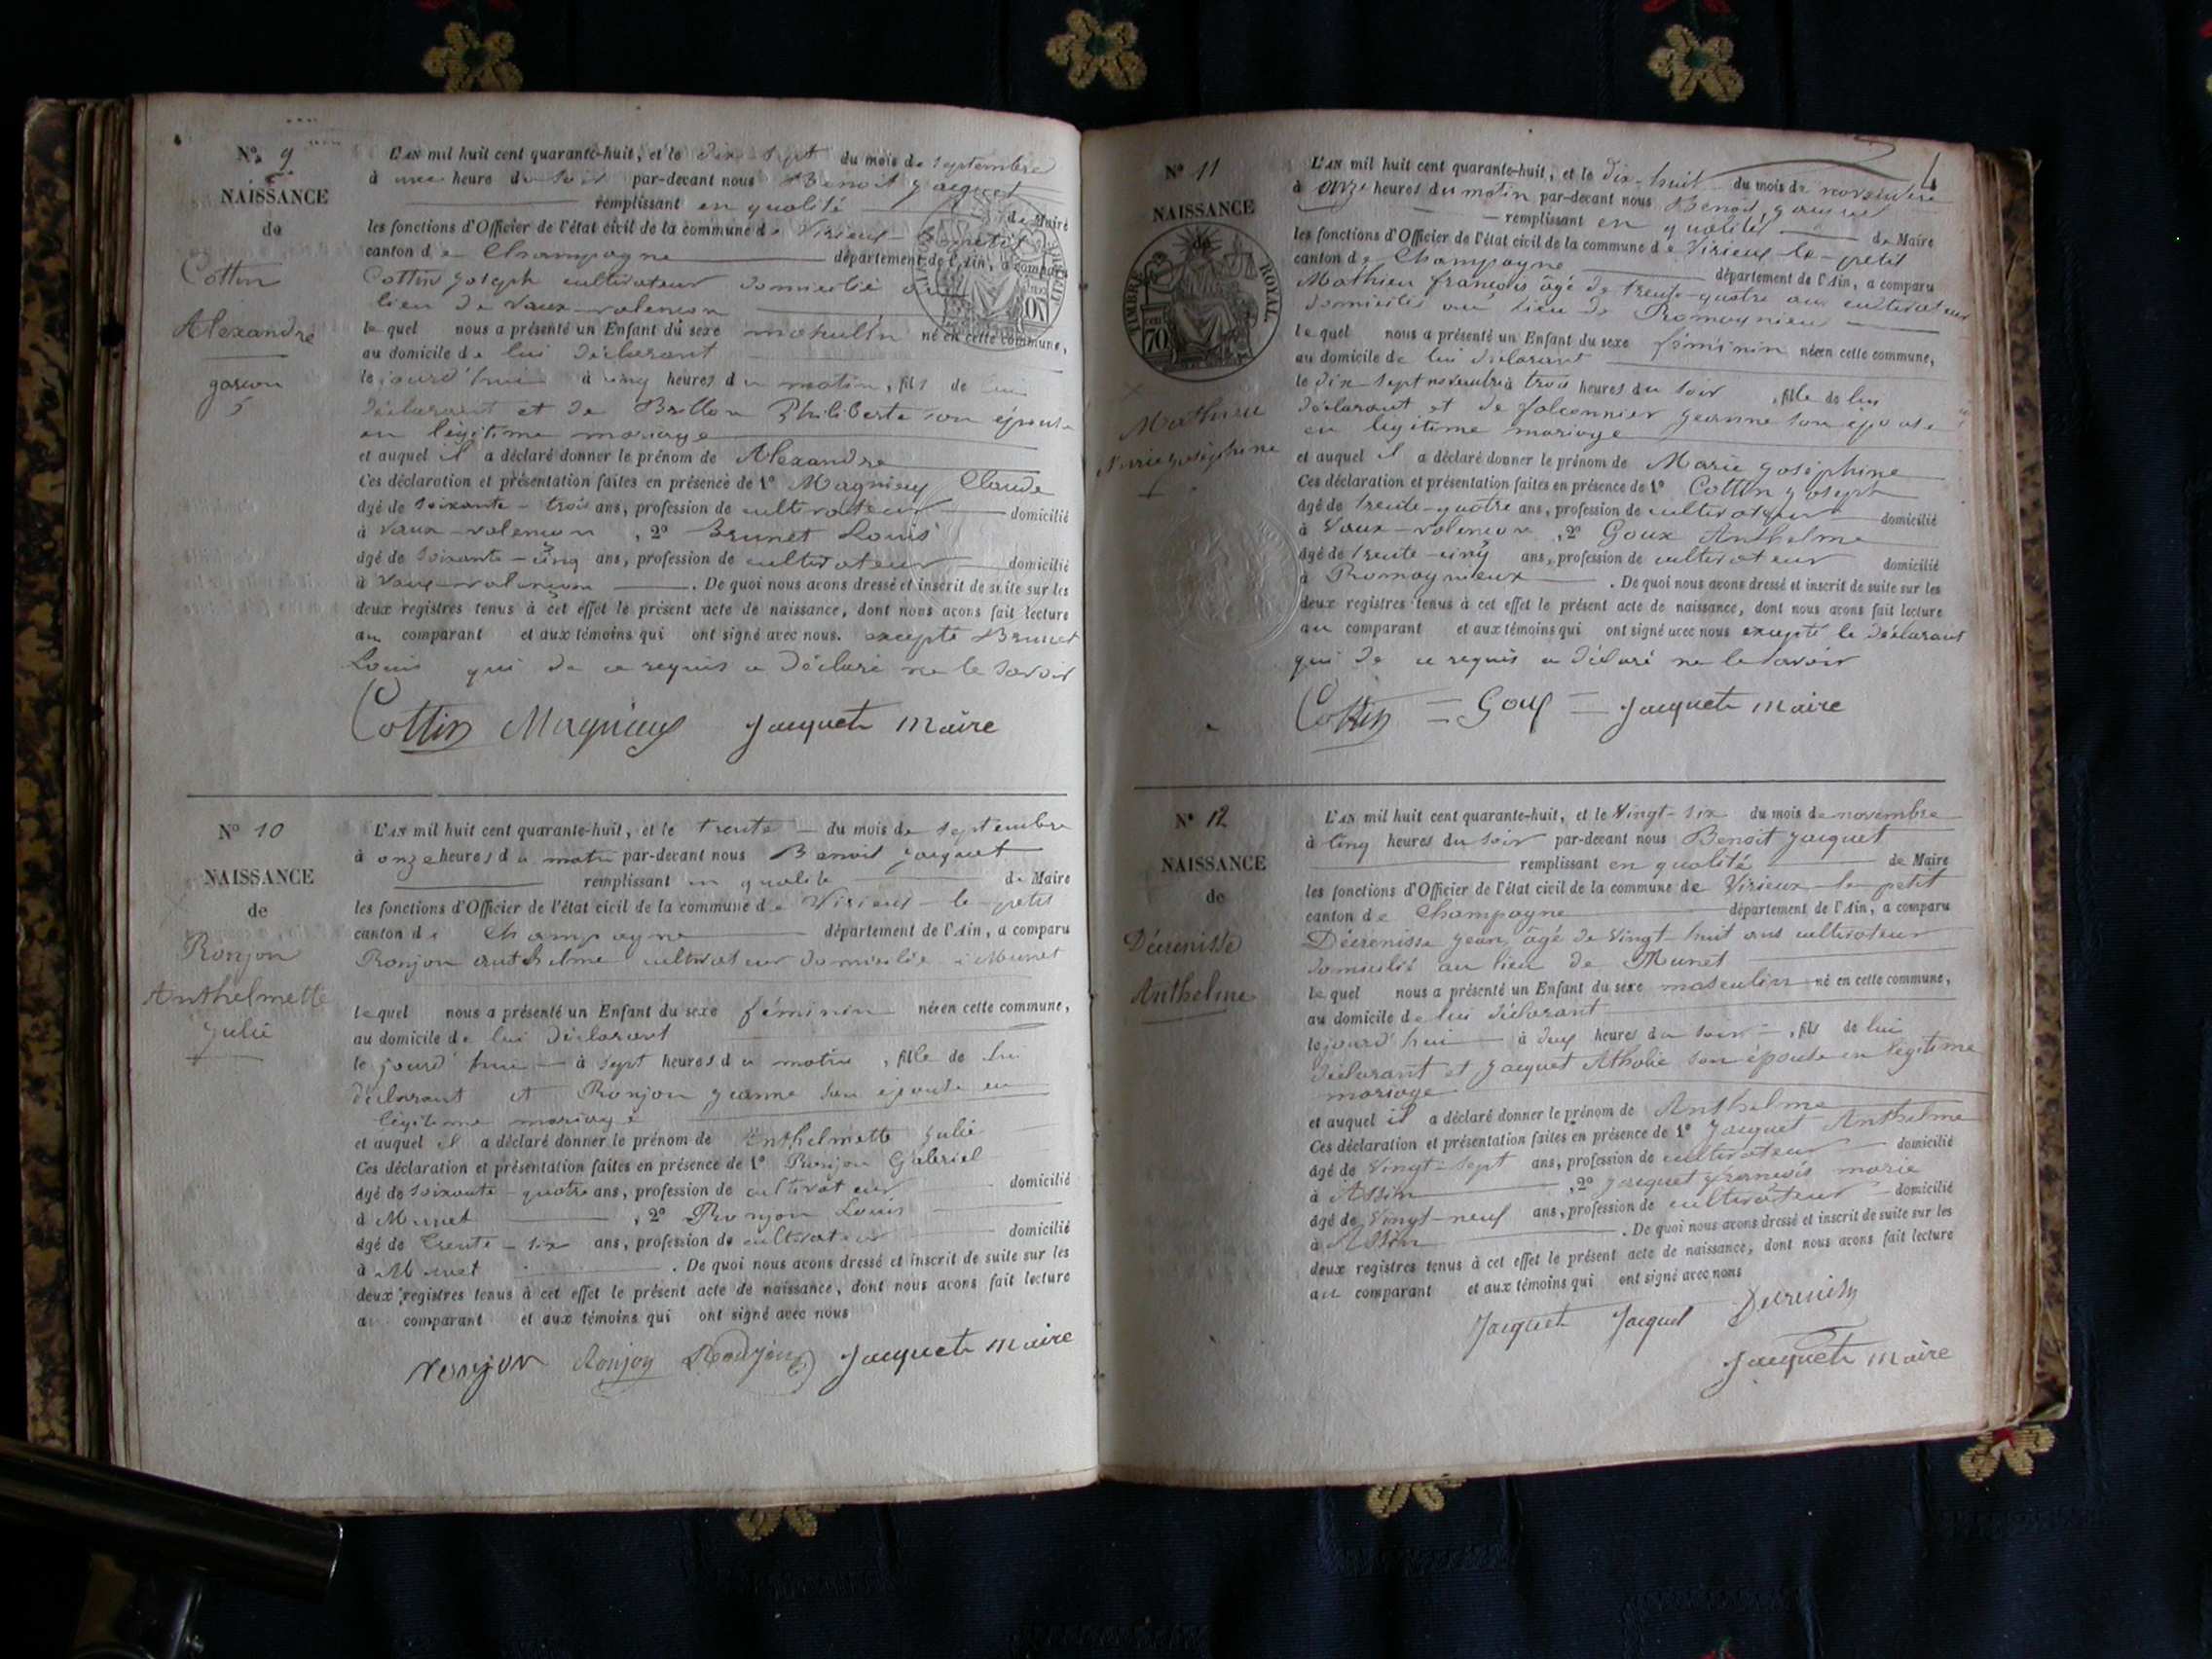 N° 9
NAISSANCE
de
Cottin
Alexandre
garçon
5
L'AN mil huit cent quarante-huit, et le dix-sept du mois de septembre
à une heure du soir par-devant nous Benoit Jacquet
remplissant en qualité de Maire
les fonctions d'Officier de l'état civil de la commune de Virieux-le-petit
canton de Champagne département de l'Ain, a comparu
Cottin Joseph cultivateur domicilié au
lieu de Vaux-valencon
lequel nous a présenté un Enfant du sexe masculin né en cette commune,
au domicile de lui déclarant
le jourd'hui à cinq heures du matin, fils de lui
déclarant et de Brillon Philiberte son épouse
en légitime mariage
et auquel il a déclaré donner le prénom de Alexandre
Ces déclaration et présentation faites en présence de 1° Magnieux Claude
âgé de soixante-trois ans, profession de cultivateur domicilié
à Vaux-valencon, 2° Brunet Louis
âgé de soixante-cinq ans, profession de cultivateur domicilié
à Vaux-valencon. De quoi nous avons dressé et inscrit de suite sur les
deux registres tenus à cet effet le présent acte de naissance, dont nous avons fait lecture
au comparant et aux témoins qui ont signé avec nous. excepté Brunet
Louis qui de ce requis a déclaré ne le savoir
Cottin Magnieux Jacquet maire
N° 10
NAISSANCE
de
Ronjon
Anthelmette
Julie
L'AN mil huit cent quarante-huit, et le trente du mois de septembre
à onze heures du matin par-devant nous Benoit Jacquet
remplissant en qualité de Maire
les fonctions d'Officier de l'état civil de la commune de Virieux-le-petit
canton de Champagne département de l'Ain, a comparu
Ronjon anthelme cultivateur domicilié à Munet
lequel nous a présenté un Enfant du sexe féminin née en cette commune,
au domicile de lui déclarant
le jourd'hui à sept heures du matin, fille de lui
déclarant et Ronjon Jeanne son épouse en
légitime mariage
et auquel il a déclaré donner le prénom de Anthelmette Julie
Ces déclaration et présentation faites en présence de 1° Ronjon Gabriel
âgé de soixante-quatre ans, profession de cultivateur domicilié
à Munet, 2° Ronjon Louis
âgé de trente-six ans, profession de cultivateur domicilié
à Munet. De quoi nous avons dressé et inscrit de suite sur les
deux registres tenus à cet effet le présent acte de naissance, dont nous avons fait lecture
au comparant et aux témoins qui ont signé avec nous
ronjon Ronjon Ronjon Jacquet maire
N° 11
NAISSANCE
de
TIMBRE ROYAL
70
Mathieu
Marie Joséphine
L'AN mil huit cent quarante-huit, et le dix-huit du mois de novembre
à onze heures du matin par-devant nous Benoit Jacquet
remplissant en qualité de Maire
les fonctions d'Officier de l'état civil de la commune de Virieux-le-petit
canton de Champagne département de l'Ain, a comparu
Mathieu françois âgé de trente-quatre ans cultivateur
domicilié au lieu de Romagnieu
lequel nous a présenté un Enfant du sexe féminin née en cette commune,
au domicile de lui déclarant
le dix-sept novembre à trois heures du soir, fille de lui
déclarant et de falconnier Jeanne son épouse
en légitime mariage
et auquel il a déclaré donner le prénom de Marie Joséphine
Ces déclaration et présentation faites en présence de 1° Cottin Joseph
âgé de trente-quatre ans, profession de cultivateur domicilié
à Vaux-valencon, 2° Goux Anthelme
âgé de trente-cinq ans, profession de cultivateur domicilié
à Romagnieux. De quoi nous avons dressé et inscrit de suite sur les
deux registres tenus à cet effet le présent acte de naissance, dont nous avons fait lecture
au comparant et aux témoins qui ont signé avec nous excepté le déclarant
qui de ce requis a déclaré ne le savoir
Cottin = Goux = Jacquet maire
N° 12
NAISSANCE
de
Décrenisse
Anthelme
L'AN mil huit cent quarante-huit, et le Vingt-six du mois de novembre
à cinq heures du soir par-devant nous Benoit Jacquet
remplissant en qualité de Maire
les fonctions d'Officier de l'état civil de la commune de Virieux-le-petit
canton de Champagne département de l'Ain, a comparu
Décrenisse Jean, âgé de Vingt-huit ans cultivateur
domicilié au lieu de Munet
lequel nous a présenté un Enfant du sexe masculin né en cette commune,
au domicile de lui déclarant
le jourd'hui à deux heures du soir, fils de lui
déclarant et Jacquet Atholie son épouse en légitime
mariage
et auquel il a déclaré donner le prénom de Anthelme
Ces déclaration et présentation faites en présence de 1° Jacquet Anthelme
âgé de Vingt-sept ans, profession de cultivateur domicilié
à Assin, 2° Jacquet françois marie
âgé de Vingt-neuf ans, profession de cultivateur domicilié
à Assin. De quoi nous avons dressé et inscrit de suite sur les
deux registres tenus à cet effet le présent acte de naissance, dont nous avons fait lecture
au comparant et aux témoins qui ont signé avec nous
Jacquet Jacquet Decrenisse
Jacquet maire